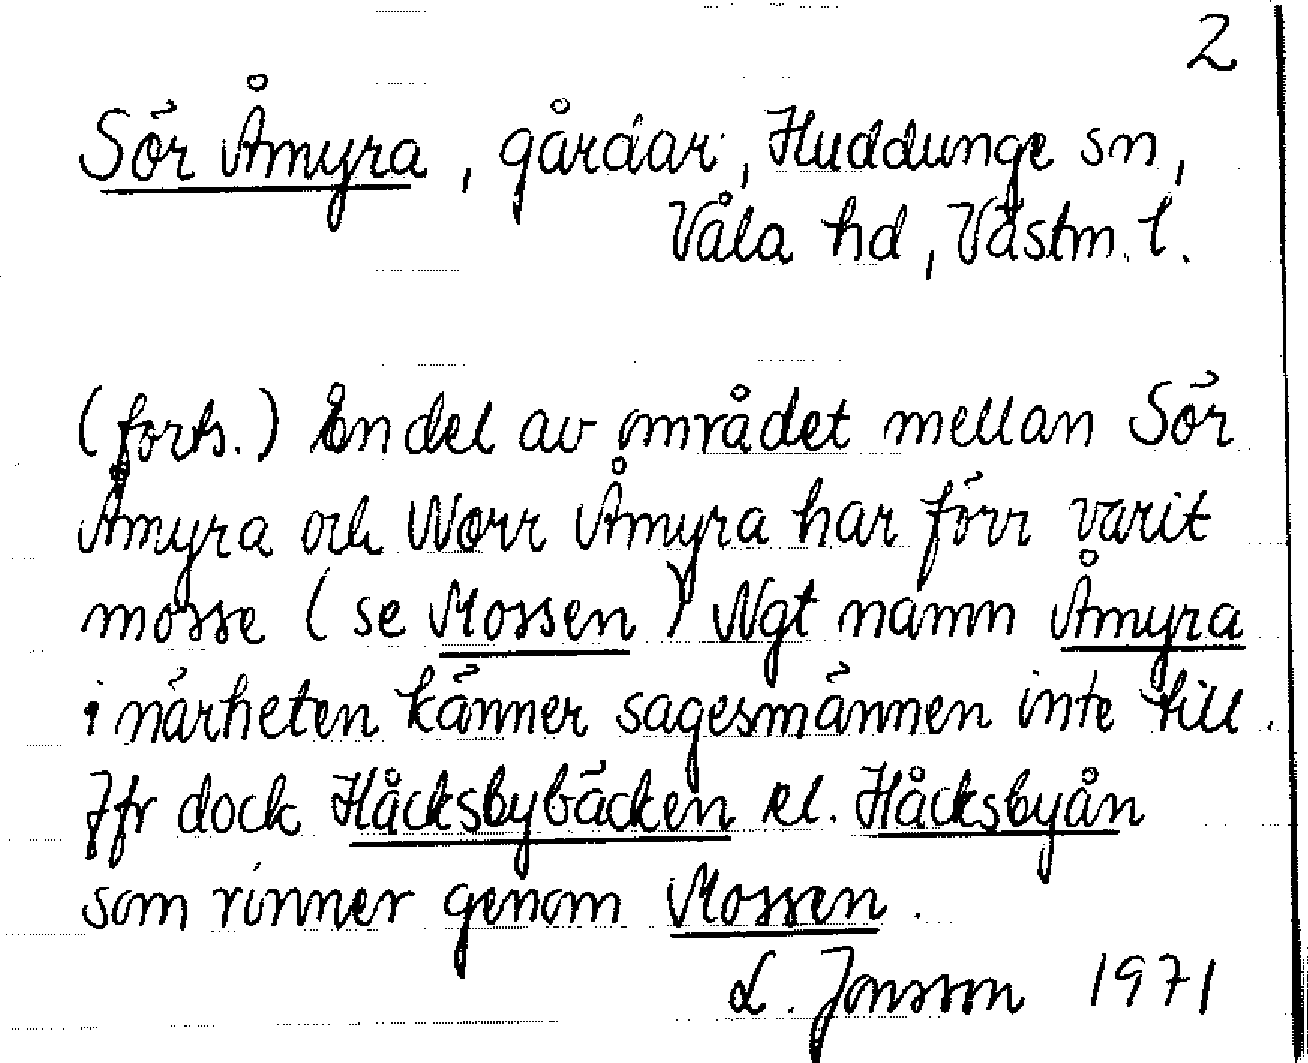 2
Sör Åmyra, gårdar, Huddunge sn,
Våla hd, Västm. l.
(forts.) En del av området mellan Sör
Åmyra och Norr Åmyra har förr varit
mosse (se Mossen) Ngt namn Åmyra
i närheten känner sagesmännen inte till.
Jfr dock Håcksbybäcken el. Håcksbyån
som rinner genom Mossen.
L. Jonsson 1971